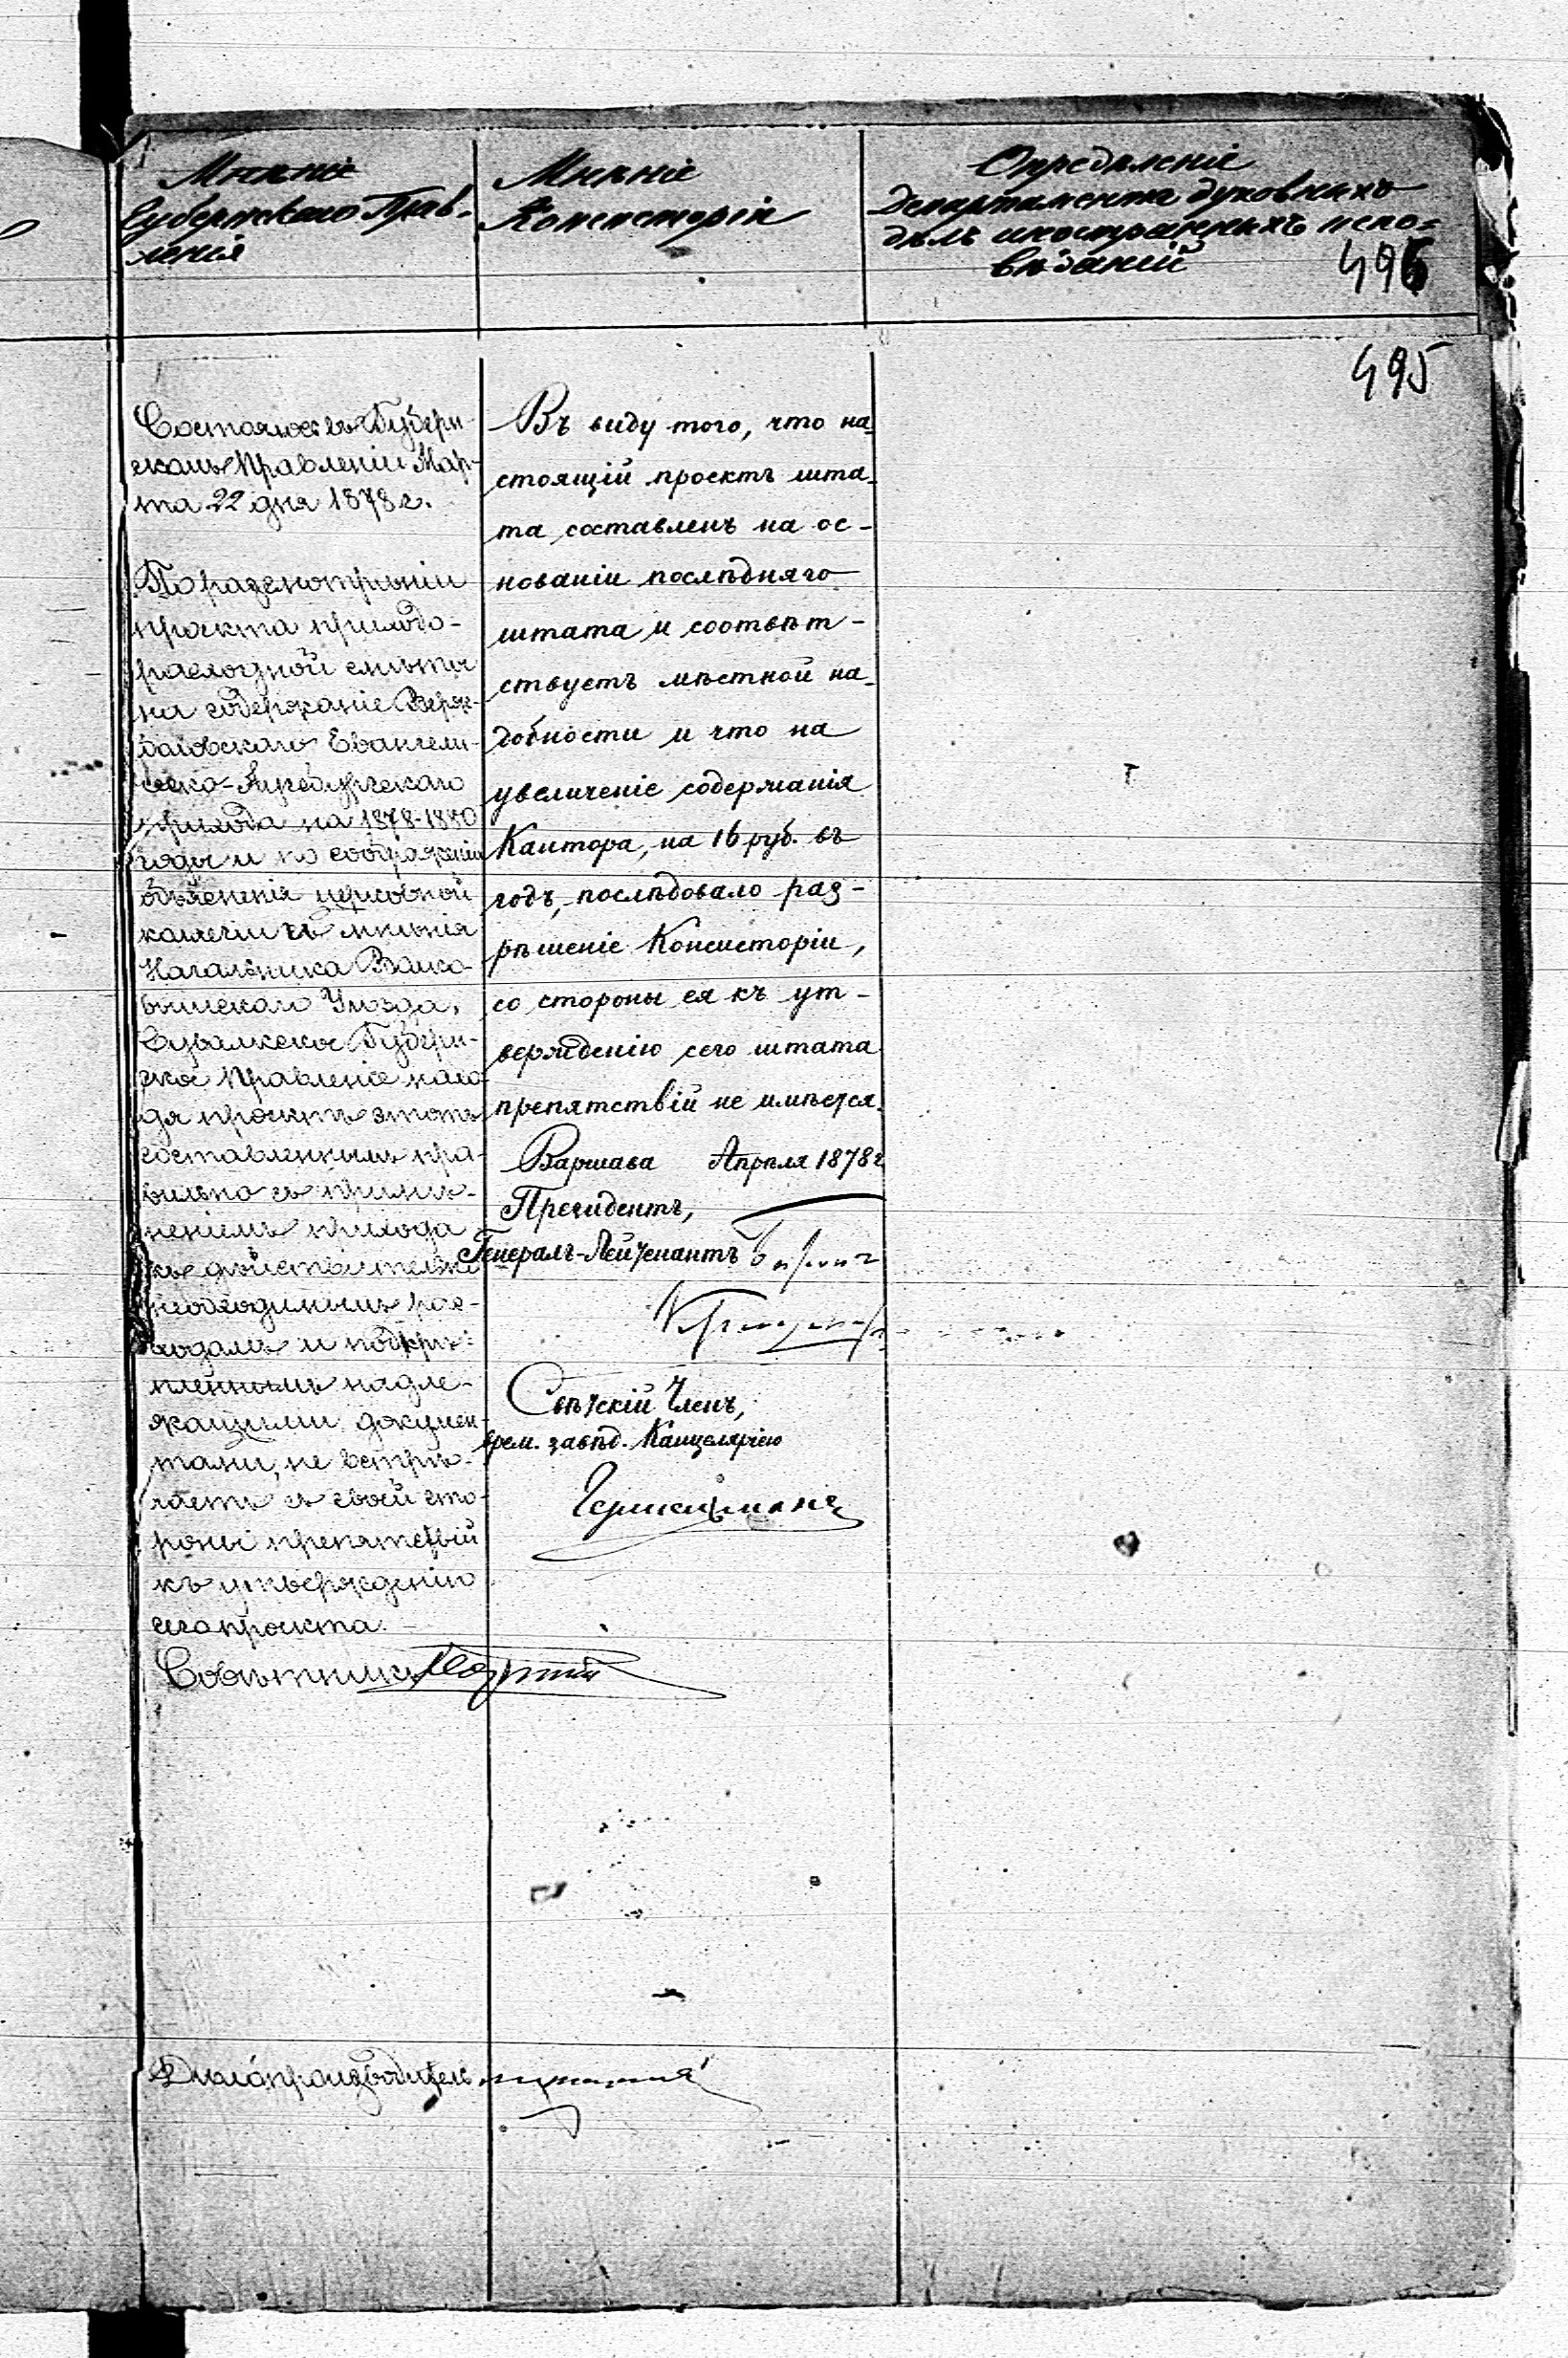 Мнѣніе
Губернскаго Прав-
ленія
Мнѣніе
Консисторіи
Опредѣленіе
Департамента духовныхъ
дѣлъ иностранныхъ испо=
вѣданій
495
Состоялось въ Губерн-
скомъ Правленіи Мар-
та 22 дня 1878 г.
По разсмотрѣніи
проекта приходо-
расходной смѣты
на содержаніе Верж-
боловскаго Евангели-
ческо-Аугсбургскаго
прихода на 1878-1880
годы и по соображеніи
объясненія церковной
коллегіи съ мнѣнія
Начальника Волко-
вышскаго Уѣзда,
Сувалкское Губерн-
ское Правленіе нахо-
дя проектъ этотъ
составленнымъ пра-
вильно съ примѣ-
неніемъ прихода
къ дѣйствительно
необходимымъ рас-
ходамъ и подкрѣ-
пленнымъ надле-
жащими докумен-
тами, не встрѣ-
чаетъ съ своей сто-
роны препятствій
къ утвержденію
сего проекта.
Совѣтникъ
Дѣлопроизводитель
Въ виду того, что на-
стоящій проектъ шта-
та составленъ на ос-
нованіи послѣдняго
штата и соотвѣт-
ствуетъ мѣстной на-
добности и что на
увеличеніе содержанія
Кантора, на 16 руб. въ
годъ, послѣдовало раз-
рѣшеніе Консисторіи,
со стороны ея къ ут-
вержденію сего штата
препятствій не имѣется.
Варшава Апрѣля 1878 г.
Президентъ,
Генералъ-Лейтенантъ
Свѣтскій Членъ,
врем. завѣд. Канцеляріею
495